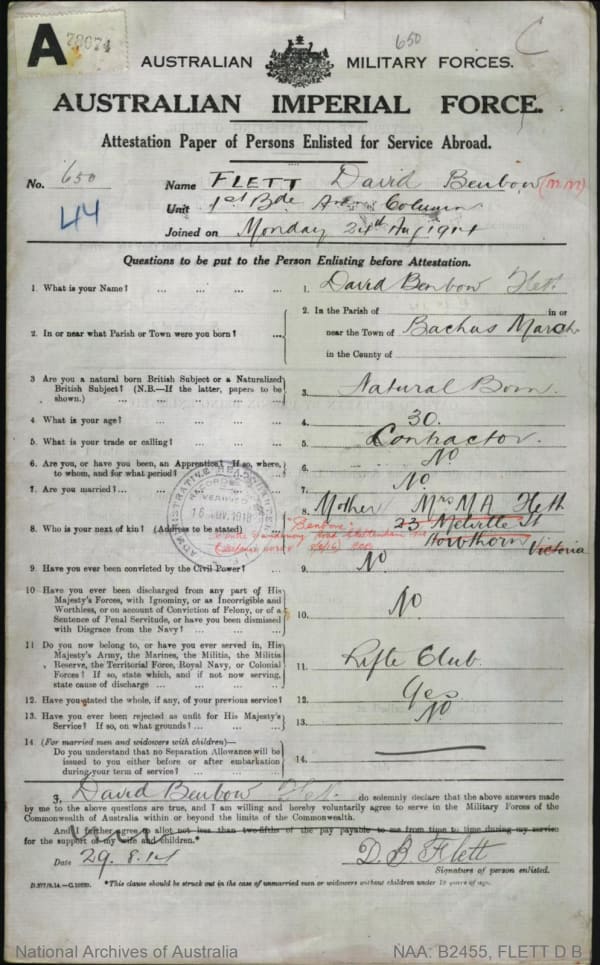 A 78074
650
C
AUSTRALIAN MILITARY FORCES.
AUSTRALIAN IMPERIAL FORCE.
Attestation Paper of Persons Enlisted for Service Abroad.
No. 650 Name FLETT David Benbow (M M)
44 Unit 1st Bde Column
Joined on Monday 24th Aug 1914
Questions to be put to the Person Enlisting before Attestation.
1. What is your Name? ... ... ... ... 1. David Benbow Flett
2. In or near what Parish or Town were you born? ... 2. In the Parish of in or
near the Town of Bachus Marsh
in the County of
3 Are you a natural born British Subject or a Naturalized
British Subject? (N.B.—If the latter, papers to be
shown.) ... ... ... ... ... 3. Natural Born.
4. What is your age? ... ... ... ... 4. 30.
5. What is your trade or calling? ... ... ... 5. Contractor.
6. Are you, or have you been, an Apprentice? If so, where,
to whom, and for what period? ... ... ... 6. No
7. Are you married? ... ... ... ... 7. No
8. Who is your next of kin? (Address to be stated) ... 8. Mother Mrs M A Fleth
23 Melville St
Howthorn Victoria
"Benbow"
16 1918
9. Have you ever been convicted by the Civil Power? ... 9. No
10 Have you ever been discharged from any part of His
Majesty's Forces, with Ignominy, or as Incorrigible and
Worthless, or on account of Conviction of Felony, or of a
Sentence of Penal Servitude, or have you been dismissed
with Disgrace from the Navy? ... ... ... 10. No
11 Do you now belong to, or have you ever served in, His
Majesty's Army, the Marines, the Militia, the Militia
Reserve, the Territorial Force, Royal Navy, or Colonial
Forces? If so, state which, and if not now serving,
state cause of discharge ... ... ... ... 11. Rifle Club.
12. Have you stated the whole, if any, of your previous service? 12. Yes
13. Have you ever been rejected as unfit for His Majesty's
Service? If so, on what grounds? ... ... ... 13. No
14. (For married men and widowers with children)—
Do you understand that no Separation Allowance will be
issued to you either before or after embarkation
during your term of service? ... ... ... 14.
I, David Benbow Flett. do solemnly declare that the above answers made
by me to the above questions are true, and I am willing and hereby voluntarily agree to serve in the Military Forces of the
Commonwealth of Australia within or beyond the limits of the Commonwealth.
And I further agree to allot not less than two-fifths of the pay payable to me from time to time during my service
for the support of my wife and children.
Date 29. 8. 14 D. B Flett
Signature of person enlisted.
*This clause should be struck out in the case of unmarried men or widowers without children under 18 years of age.
National Archives of Australia NAA: B2455, FLETT D B